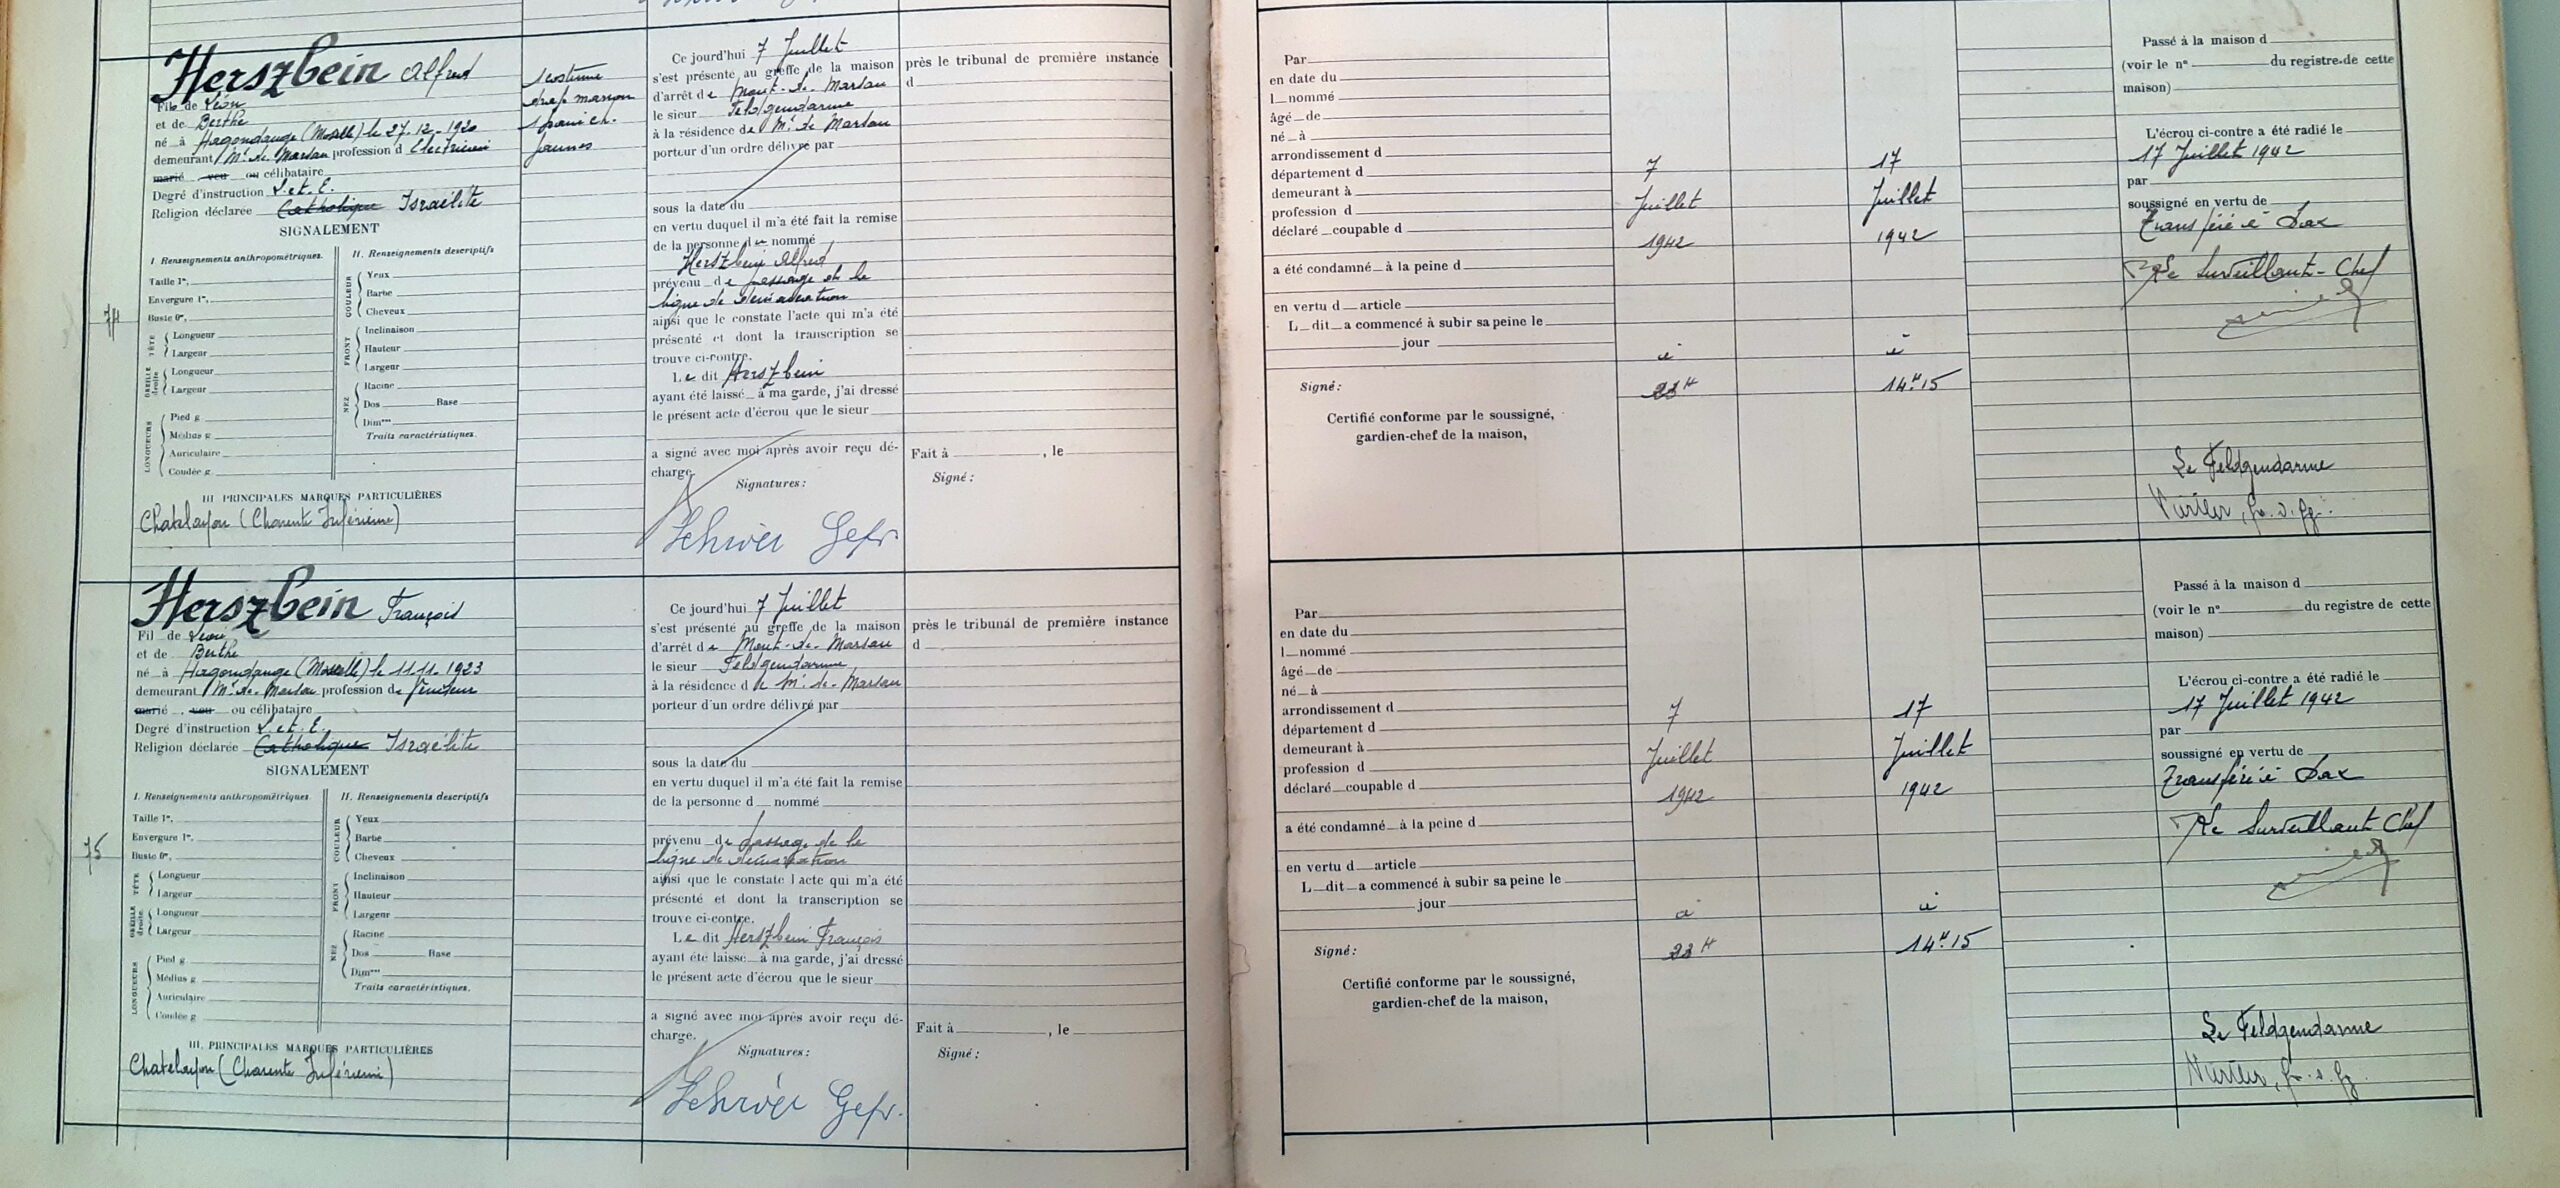 Herszbein Alfred
Fils de Léon
et de Berthe
né à Hagondange (Moselle) le 27.12.1920
demeurant Mt de Marsan profession d Electricien
marié veu ou célibataire
Degré d'instruction L. et. E.
Religion déclarée Catholique Israélite
SIGNALEMENT
I. Renseignements anthropométriques.
Taille 1m,
Envergure 1m,
Buste 0m,
TÊTE
Longueur
Largeur
OREILLE droite
Longueur
Largeur
LONGUEURS
Pied g
Médius g
Auriculaire
Coudée g
II. Renseignements descriptifs
COULEUR
Yeux
Barbe
Cheveux
FRONT
Inclinaison
Hauteur
Largeur
NEZ
Racine
Dos Base
Dimons
Traits caractéristiques.
III PRINCIPALES MARQUES PARTICULIÈRES
(Charente Inférieure)
74
1 costume
drap marron
jaunes
Ce jourd'hui 7 Juillet
s'est présenté au greffe de la maison
d'arrêt de Mont-de-Marsan
le sieur Feldgendarme
à la résidence de Mt de Marsan
porteur d'un ordre délivré par
sous la date du
en vertu duquel il m'a été fait la remise
de la personne du nommé
Herszbein Alfred
prévenu de passage de la
ligne de démarcation
ainsi que le constate l'acte qui m'a été
présenté et dont la transcription se
trouve ci-contre.
Le dit Herszbein
ayant été laissé à ma garde, j'ai dressé
le présent acte d'écrou que le sieur
a signé avec moi après avoir reçu dé-
charge.
Signatures:
Gefr.
près le tribunal de première instance
d
Fait à , le
Signé:
Par
en date du
l nommé
âgé de
né à
arrondissement d
département d
demeurant à
profession d
déclaré coupable d
a été condamné à la peine d
en vertu d article
L dit a commencé à subir sa peine le
jour
Signé:
Certifié conforme par le soussigné,
gardien-chef de la maison,
7
Juillet
1942
à
H
17
Juillet
1942
à
14H15
Passé à la maison d
(voir le n° du registre de cette
maison)
L'écrou ci-contre a été radié le
17 Juillet 1942
par
soussigné en vertu de
Transféré à Dax
Le Surveillant-Chef
Le Feldgendarme
Herszbein François
Fil de Léon
et de Berthe
né à Hagondange (Moselle) le 11.11.1923
demeurant Mt de Marsan profession de
marié veu ou célibataire
Degré d'instruction L. et. E.
Religion déclarée Catholique Israélite
SIGNALEMENT
I. Renseignements anthropométriques
Taille 1m,
Envergure 1m,
Buste 0m,
TÊTE
Longueur
Largeur
OREILLE droite
Longueur
Largeur
LONGUEURS
Pied g
Médius g
Auriculaire
Coudée g
II. Renseignements descriptifs
COULEUR
Yeux
Barbe
Cheveux
FRONT
Inclinaison
Hauteur
Largeur
NEZ
Racine
Dos Base
Dimons
Traits caractéristiques.
III. PRINCIPALES MARQUES PARTICULIÈRES
(Charente Inférieure)
75
Ce jourd'hui 7 Juillet
s'est présenté au greffe de la maison
d'arrêt de Mont-de-Marsan
le sieur Feldgendarme
à la résidence d e Mt de Marsan
porteur d'un ordre délivré par
sous la date du
en vertu duquel il m'a été fait la remise
de la personne d nommé
prévenu de passage de la
ligne de démarcation
ainsi que le constate l'acte qui m'a été
présenté et dont la transcription se
trouve ci-contre.
Le dit Herszbein François
ayant été laissé à ma garde, j'ai dressé
le présent acte d'écrou que le sieur
a signé avec moi après avoir reçu dé-
charge.
Signatures:
Gefr.
près le tribunal de première instance
d
Fait à , le
Signé:
Par
en date du
l nommé
âgé de
né à
arrondissement d
département d
demeurant à
profession d
déclaré coupable d
a été condamné à la peine d
en vertu d article
L dit a commencé à subir sa peine le
jour
Signé:
Certifié conforme par le soussigné,
gardien-chef de la maison,
7
Juillet
1942
à
H
17
Juillet
1942
à
14H15
Passé à la maison d
(voir le n° du registre de cette
maison)
L'écrou ci-contre a été radié le
17 Juillet 1942
par
soussigné en vertu de
Transféré à Dax
Le Surveillant Chef
Le Feldgendarme